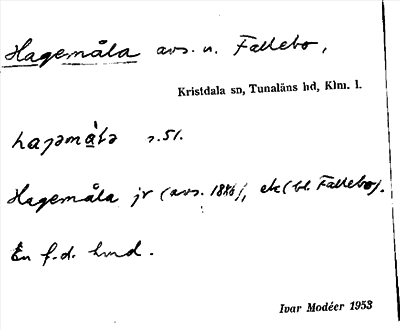 Hagemåla avs. u. Fallebo,
Kristdala sn, Tunaläns hd, Klm. l.
s. 51.
Hagemåla jr (avs. 1886), ek (bl. Fallebo).
En f.d. hmd.
Ivar Modéer 1953